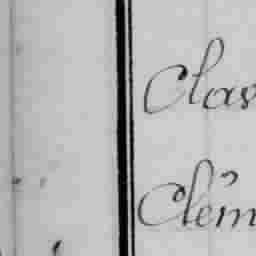 Clas
Clem